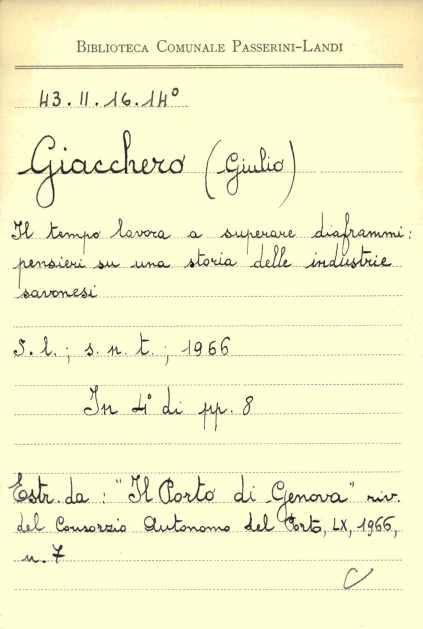 BIBLIOTECA COMUNALE PASSERINI-LANDI
43.II.16.14°
Giacchero (Giulio)
Il tempo lavora a superare diaframmi:
pensieri su una storia delle industrie
savonesi
S. l. ; s. n. t. ; 1966
In 4° di pp. 8
Estr. da : "Il Porto di Genova" riv.
del Consorzio Autonomo del Porto, LX, 1966,
n. 7